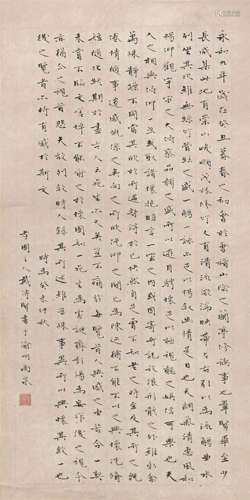 永和九年歲在癸丑暮春之初會於會稽山陰之蘭亭脩禊事也羣賢畢至少
長咸集此地有崇山峻領茂林脩竹又有清流激湍映帶左右引以為流觴曲水
列坐其次雖無絲竹管弦之盛一觴一詠亦足以暢敘幽情是日也天朗氣清惠風和
暢仰觀宇宙之大俯察品類之盛所以遊目騁懷足以極視聽之娛信可樂也夫
人之相與俯仰一世或取諸懷抱悟言一室之內或因寄所託放浪形骸之外雖趣舍
萬殊靜躁不同當其欣於所遇暫得於己快然自足不知老之將至及其所之既
倦情隨事遷感慨係之矣向之所欣俛仰之間以為陳迹猶不能不以之興懷況脩
短隨化終期於盡古人云死生亦大矣豈不痛哉每攬昔人興感之由若合一契
未嘗不臨文嗟悼不能喻之於懷固知一死生為虛誕齊彭殤為妄作後之視今
亦猶今之視昔悲夫故列敘時人錄其所述雖世殊事異所以興懷其致一也
後之覽者亦將有感於斯文
時為癸未仲秋
孝園人戴傳賢書于渝州